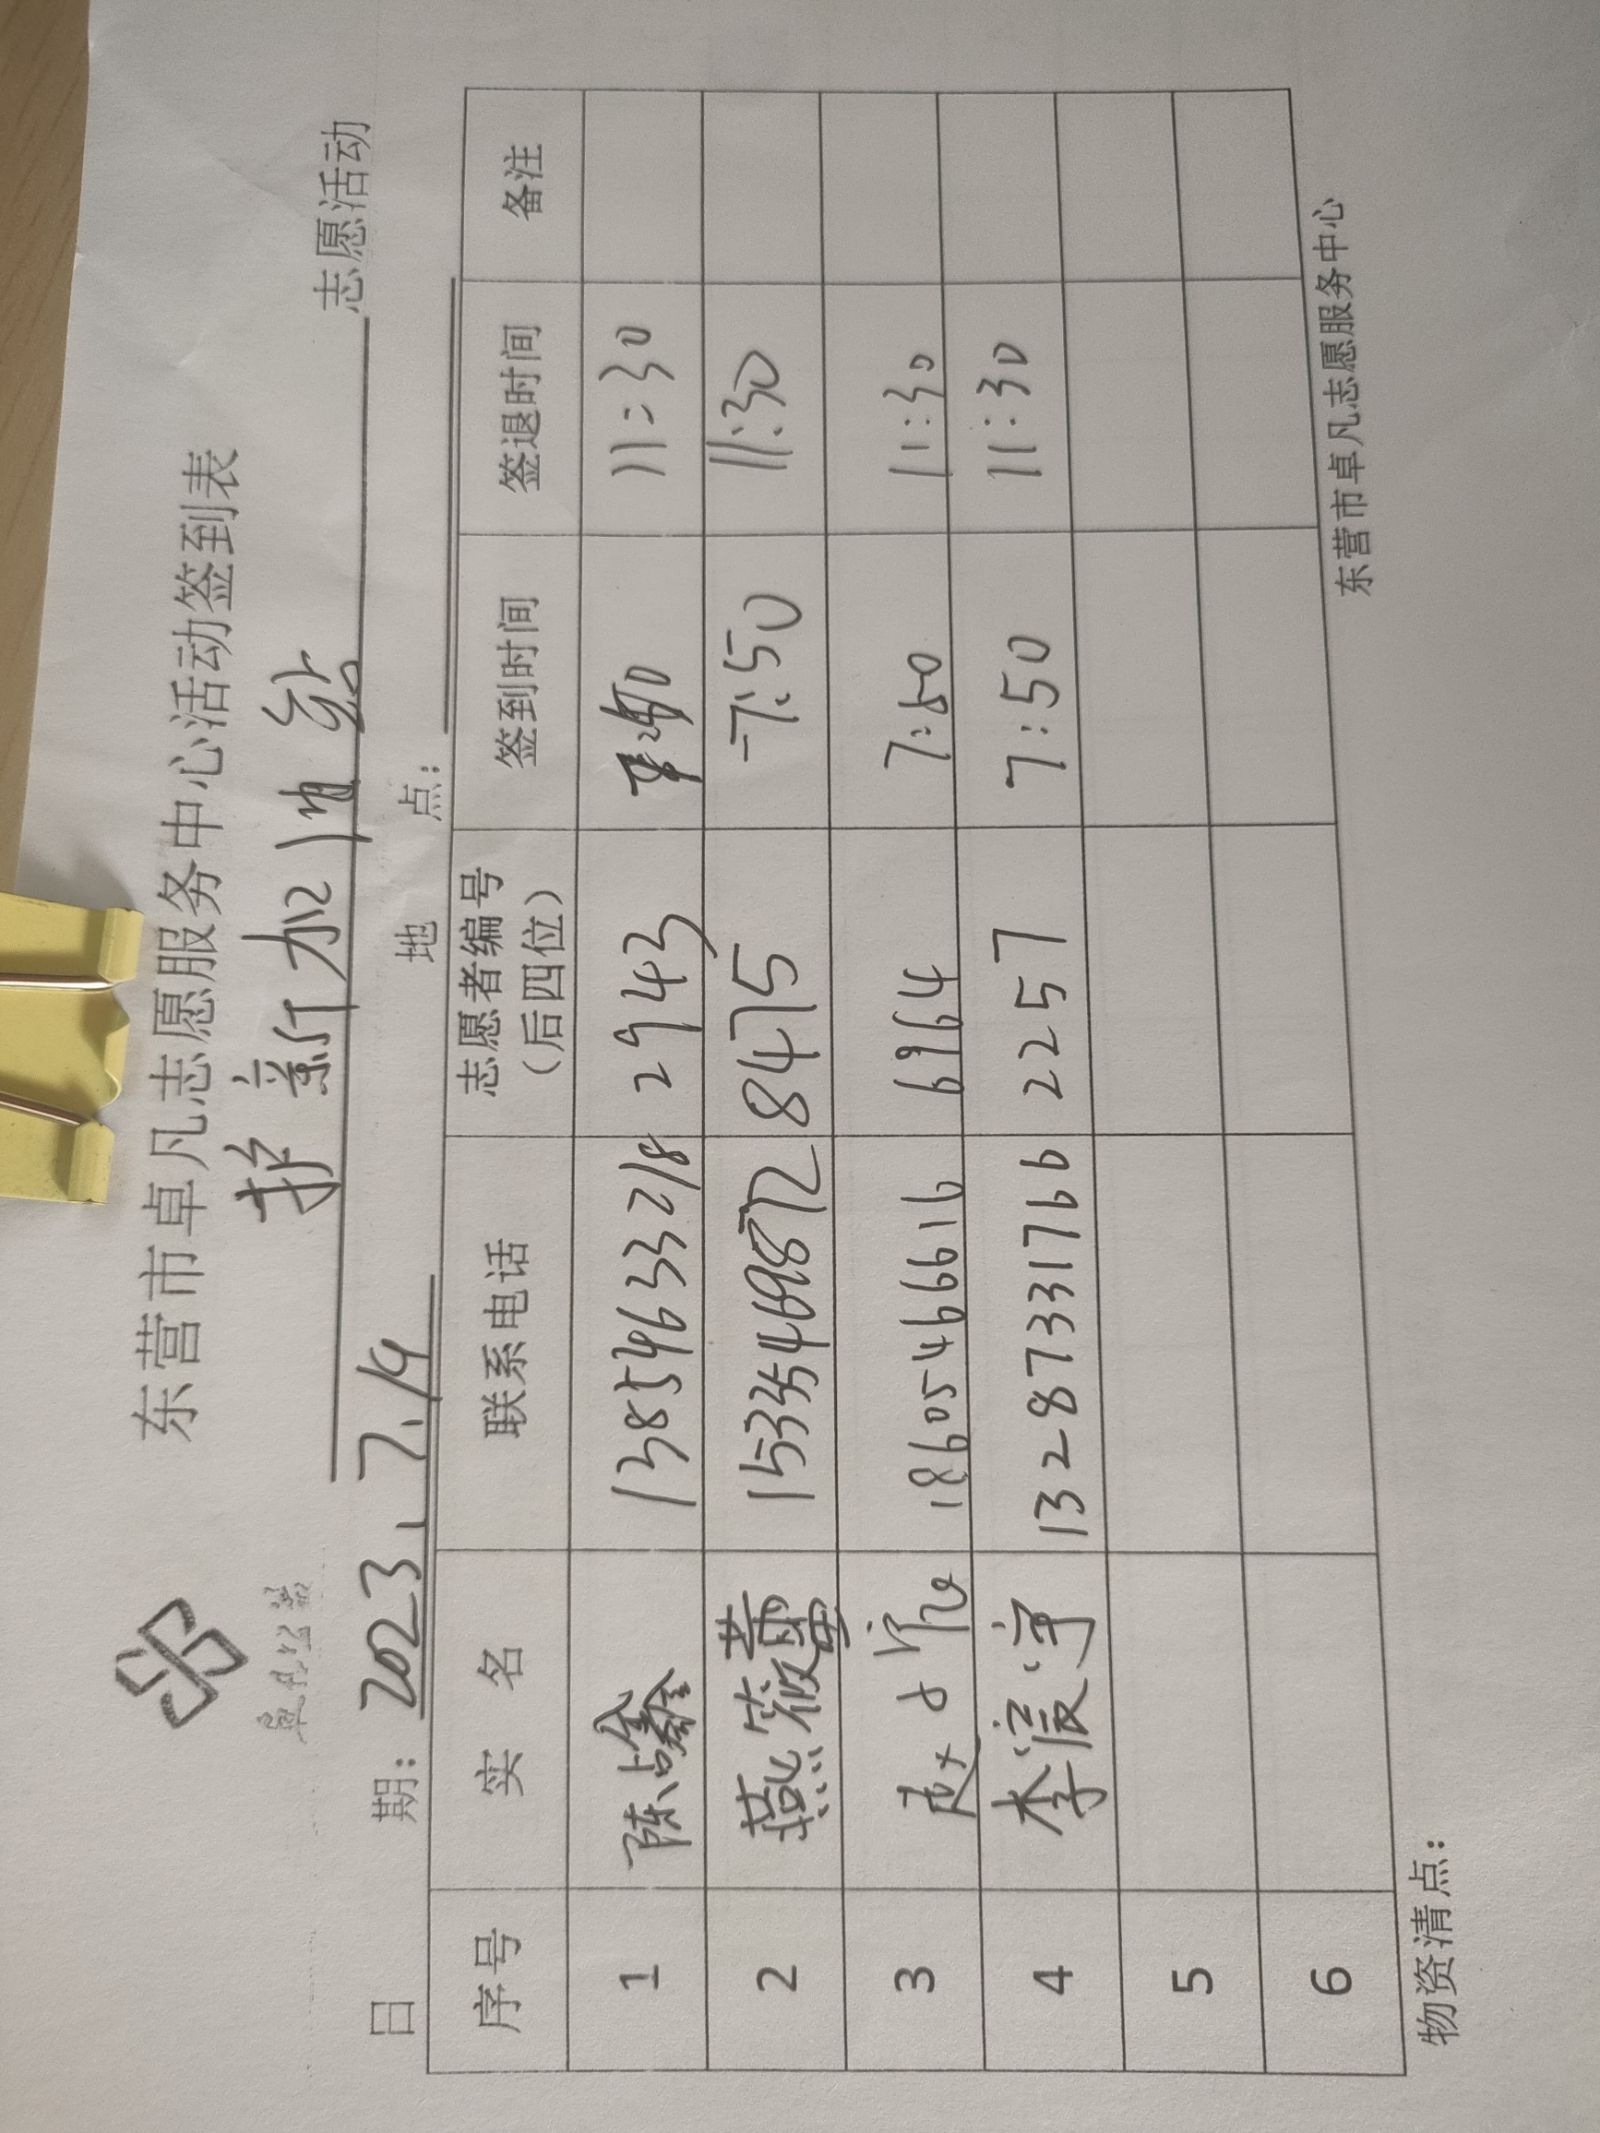 东营市卓凡志愿服务中心活动签到表
护薪加油站 志愿活动
日 期：2023.7.19 地 点：
序号 实 名 联系电话 志愿者编号（后四位） 签到时间 签退时间 备注
1 陈占鑫 13854633218 2943 11:30
2 燕筱蕾 15354698872 8475 7:50 11:30
3 赵 18605466616 6964 7:50 11:30
4 李霞宇 13287331766 2257 7:50 11:30
5
6
东营市卓凡志愿服务中心
物资清点：